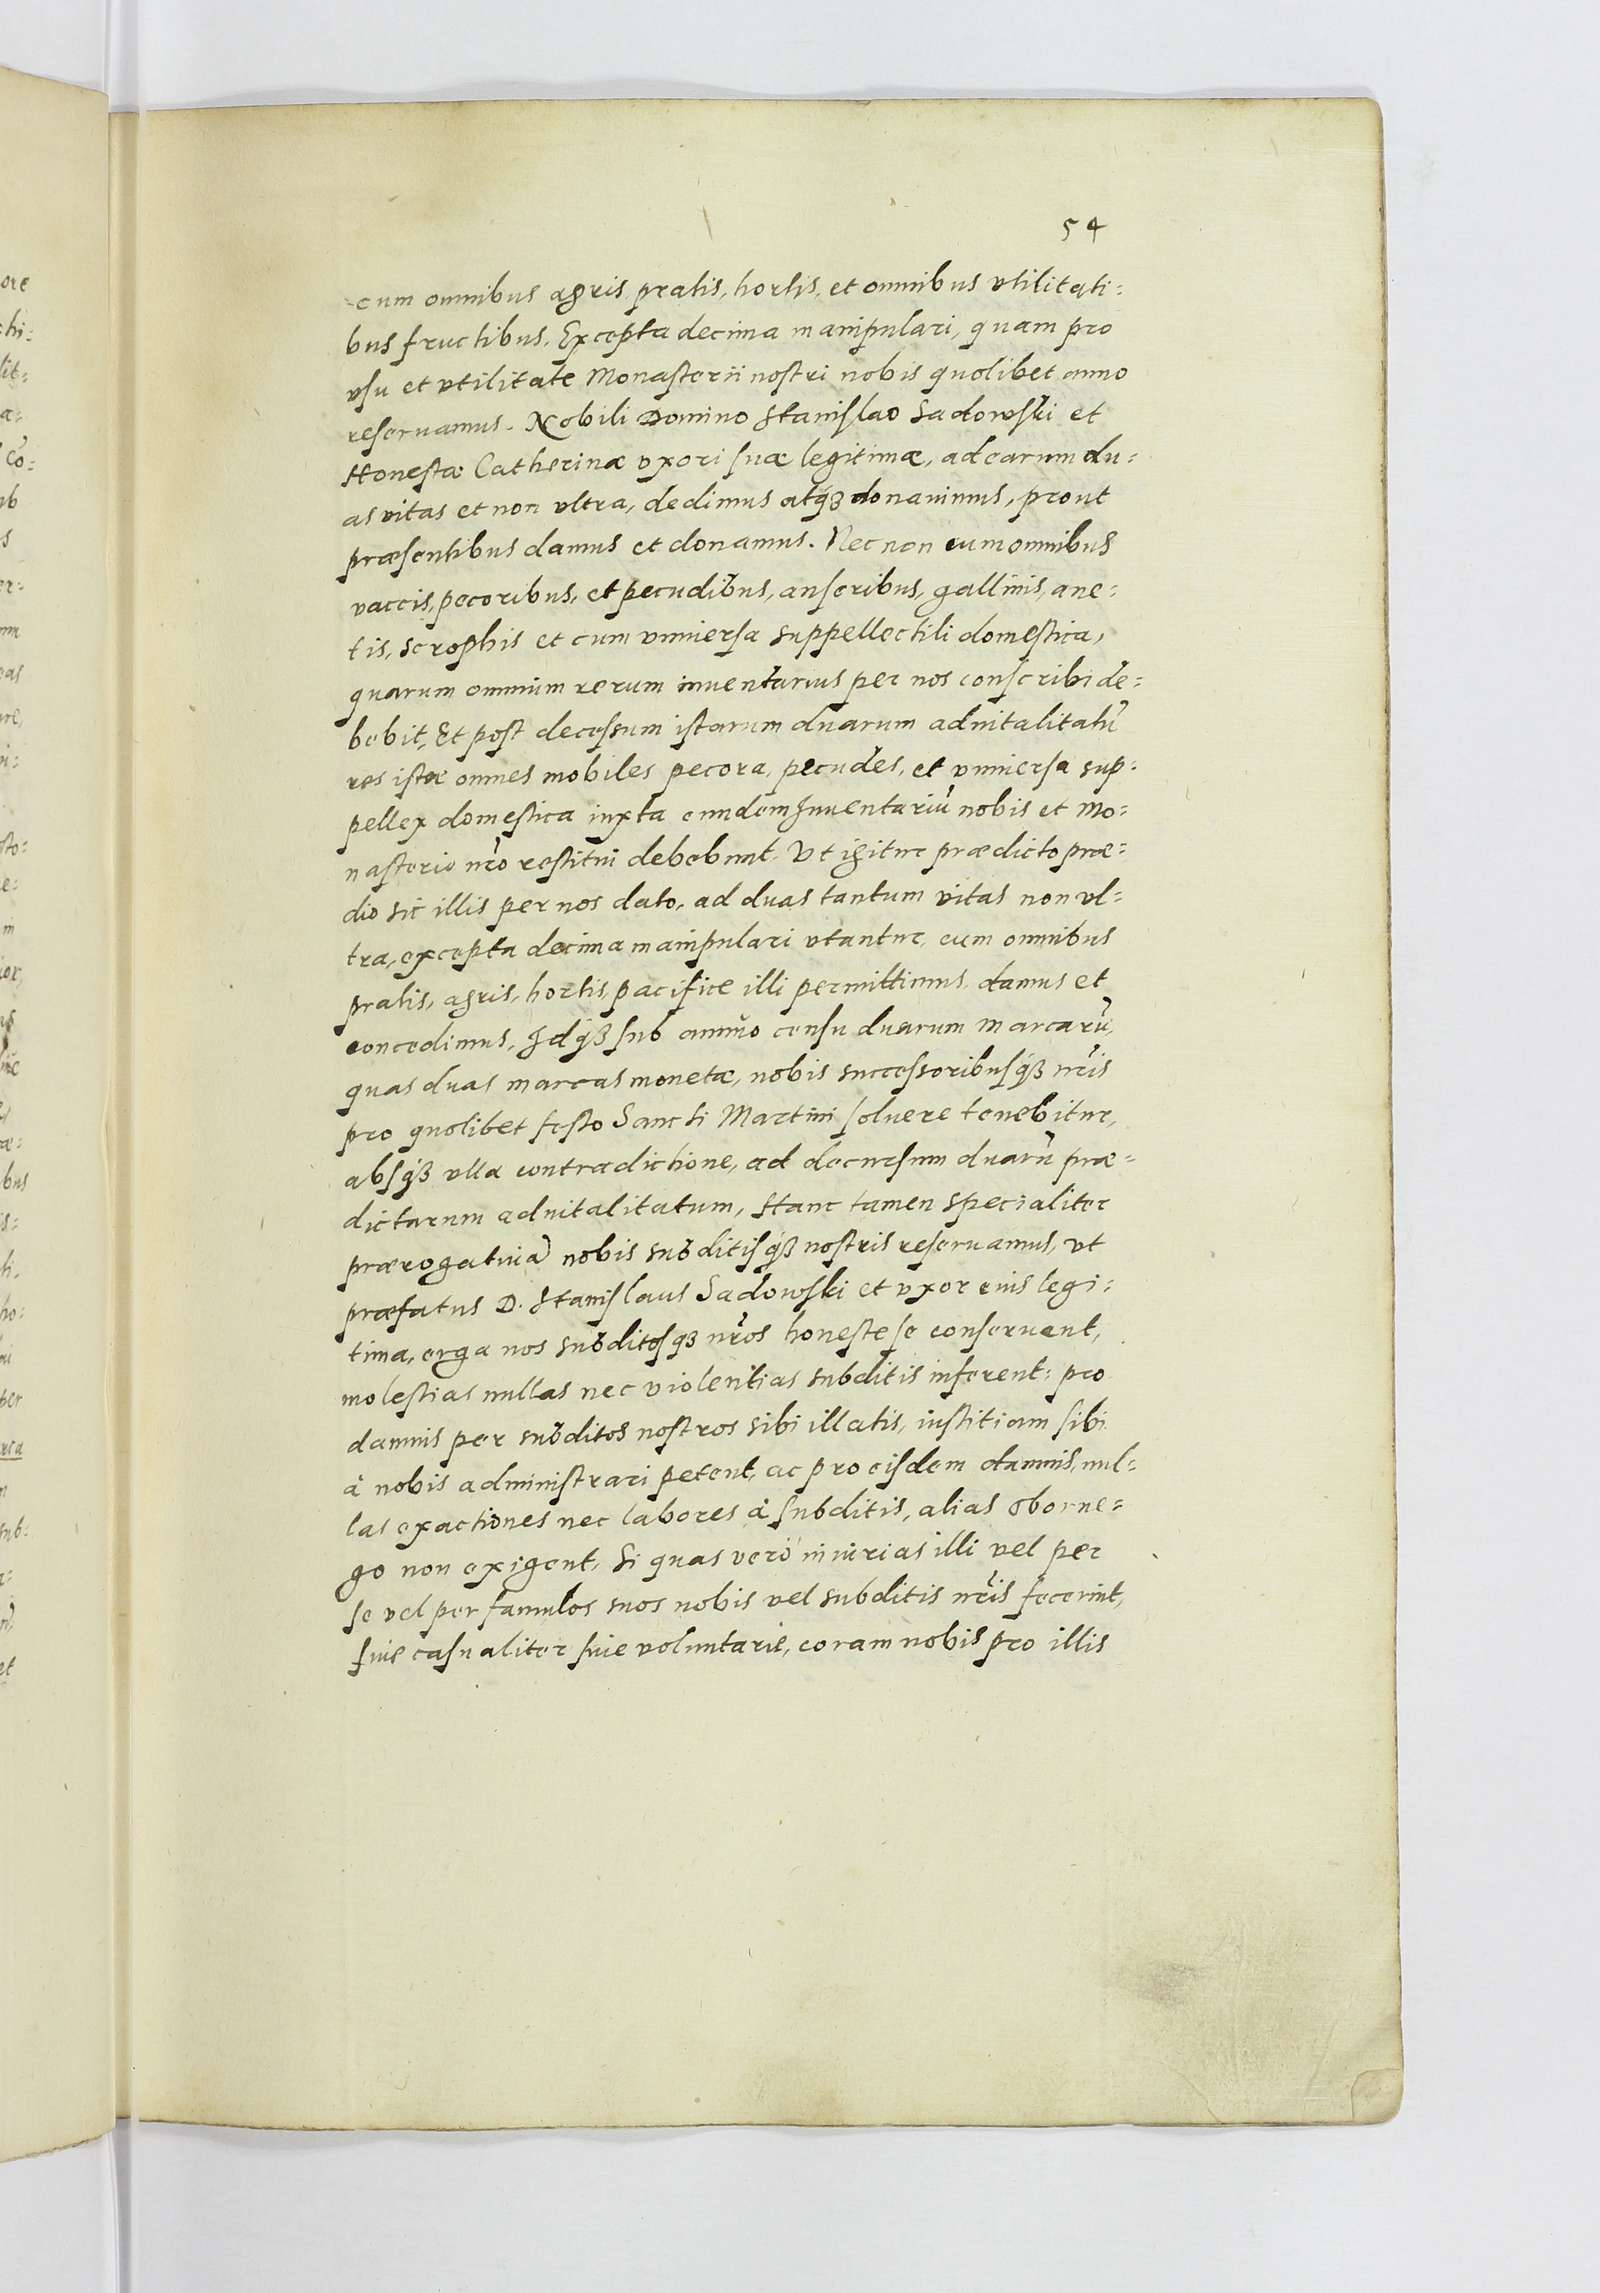 54
cum omnibus agris, pratis, hortis, et omnibus vtilitati=
bus fructibus. Excepta decima manipulari, quam pro
vsu et vtilitate Monasterii nostri nobis quolibet anno
reseruamus. Nobili Domino Stanislao Sadowski et
Honestæ Catherinæ vxori suæ legitimæ, ad earum du=
as vitas et non vltra, dedimus atq́ꝫ donauimus, prout
præsentibus damus et donamus. Nec non cum omnibus
vaccis, pecoribus, et pecudibus, anseribus, gallinis, ane=
tis, scrophis et cum vniuersa suppellectili domestica,
quarum omnium rerum inuentarius per nos conscribi de=
bebit, Et post decessum istarum duarum aduitalitatũ
res istæ omnes mobiles pecora, pecudes, et vniuersa sup=
pellex domestica iuxta eundem Inuentariũ nobis et Mo=
nasterio nr̃o restitui debebunt. Vt igitur prædicto præ=
dio sic illis per nos dato, ad duas tantum vitas non vl=
tra, excepta decima manipulari vtantur, cum omnibus
pratis, agris, hortis, pacifice illi permittimus, damus et
concedimus, Idq́ꝫ sub annuo censu duarum marcarũ,
quas duas marcas monetæ, nobis successoribusq́ꝫ nr̃is
pro quolibet festo Sancti Martini soluere tenebitur,
absq́ꝫ vlla contradictione, ad decursum duarũ præ=
dictarum aduitalitatum, Hanc tamen specialiter
prærogatiuã nobis subditisq́ꝫ nostris reseruamus, vt
præfatus D. Stanislaus Sadowski et vxor eius legi=
tima, erga nos subditosq́ꝫ nr̃os honeste se conseruent,
molestias nullas nec violentias subditis inferent: pro
damnis per subditos nostros sibi illatis, iustitiam sibi
à nobis administrari petent, ac pro eisdem damnis, nul=
las exactiones nec labores à subditis, alias oborne=
go non exigent, Si quas verò iniurias illi vel per
se vel per famulos suos nobis vel subditis nr̃is fecerint,
siue casualiter siue voluntarie, coram nobis pro illis